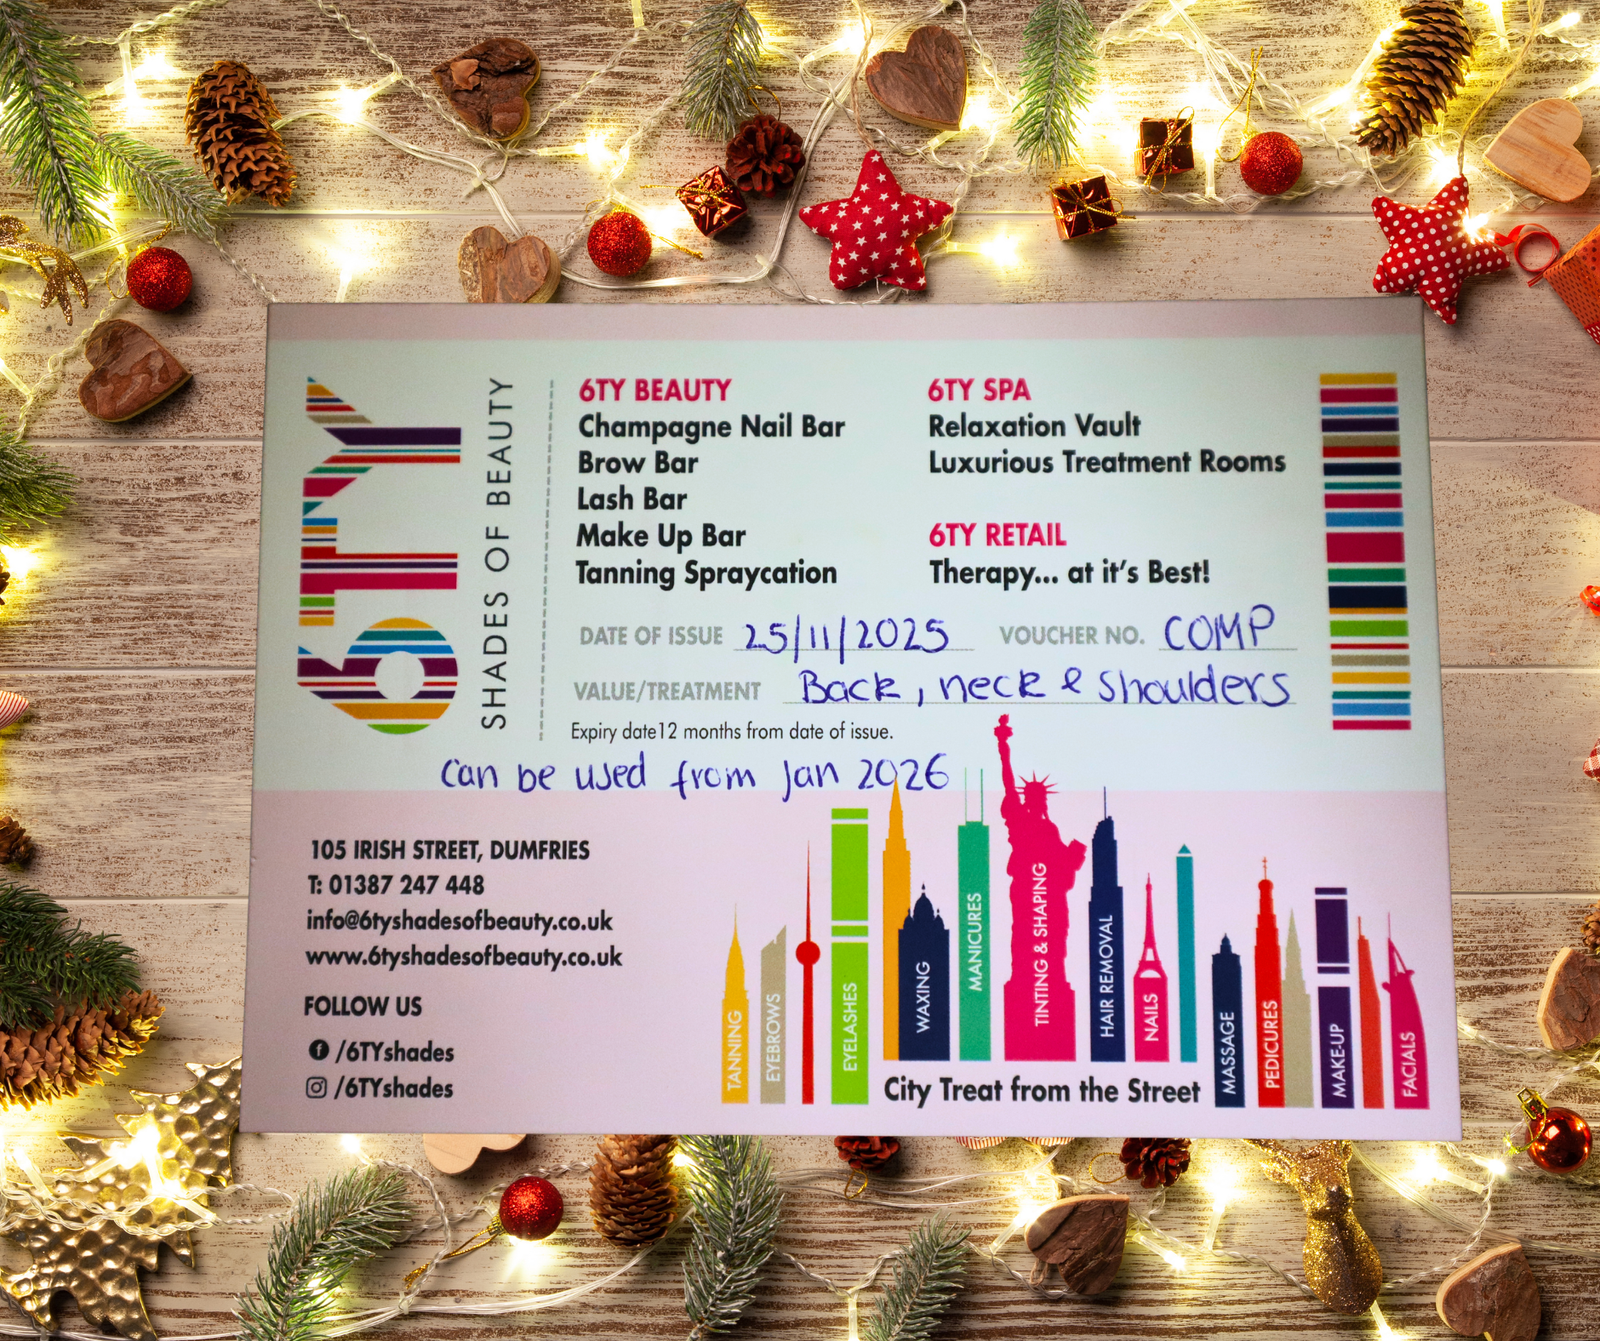 6TY
SHADES OF BEAUTY
6TY BEAUTY
Champagne Nail Bar
Brow Bar
Lash Bar
Make Up Bar
Tanning Spraycation
6TY SPA
Relaxation Vault
Luxurious Treatment Rooms
6TY RETAIL
Therapy... at it's Best!
DATE OF ISSUE 25/11/2025 VOUCHER NO. COMP
VALUE/TREATMENT Back, neck & shoulders
Expiry date12 months from date of issue.
Can be used from Jan 2026
105 IRISH STREET, DUMFRIES
T: 01387 247 448
info@6tyshadesofbeauty.co.uk
www.6tyshadesofbeauty.co.uk
FOLLOW US
/6TYshades
/6TYshades
TANNING
EYEBROWS
EYELASHES
WAXING
MANICURES
TINTING & SHAPING
HAIR REMOVAL
NAILS
MASSAGE
PEDICURES
MAKE-UP
FACIALS
City Treat from the Street